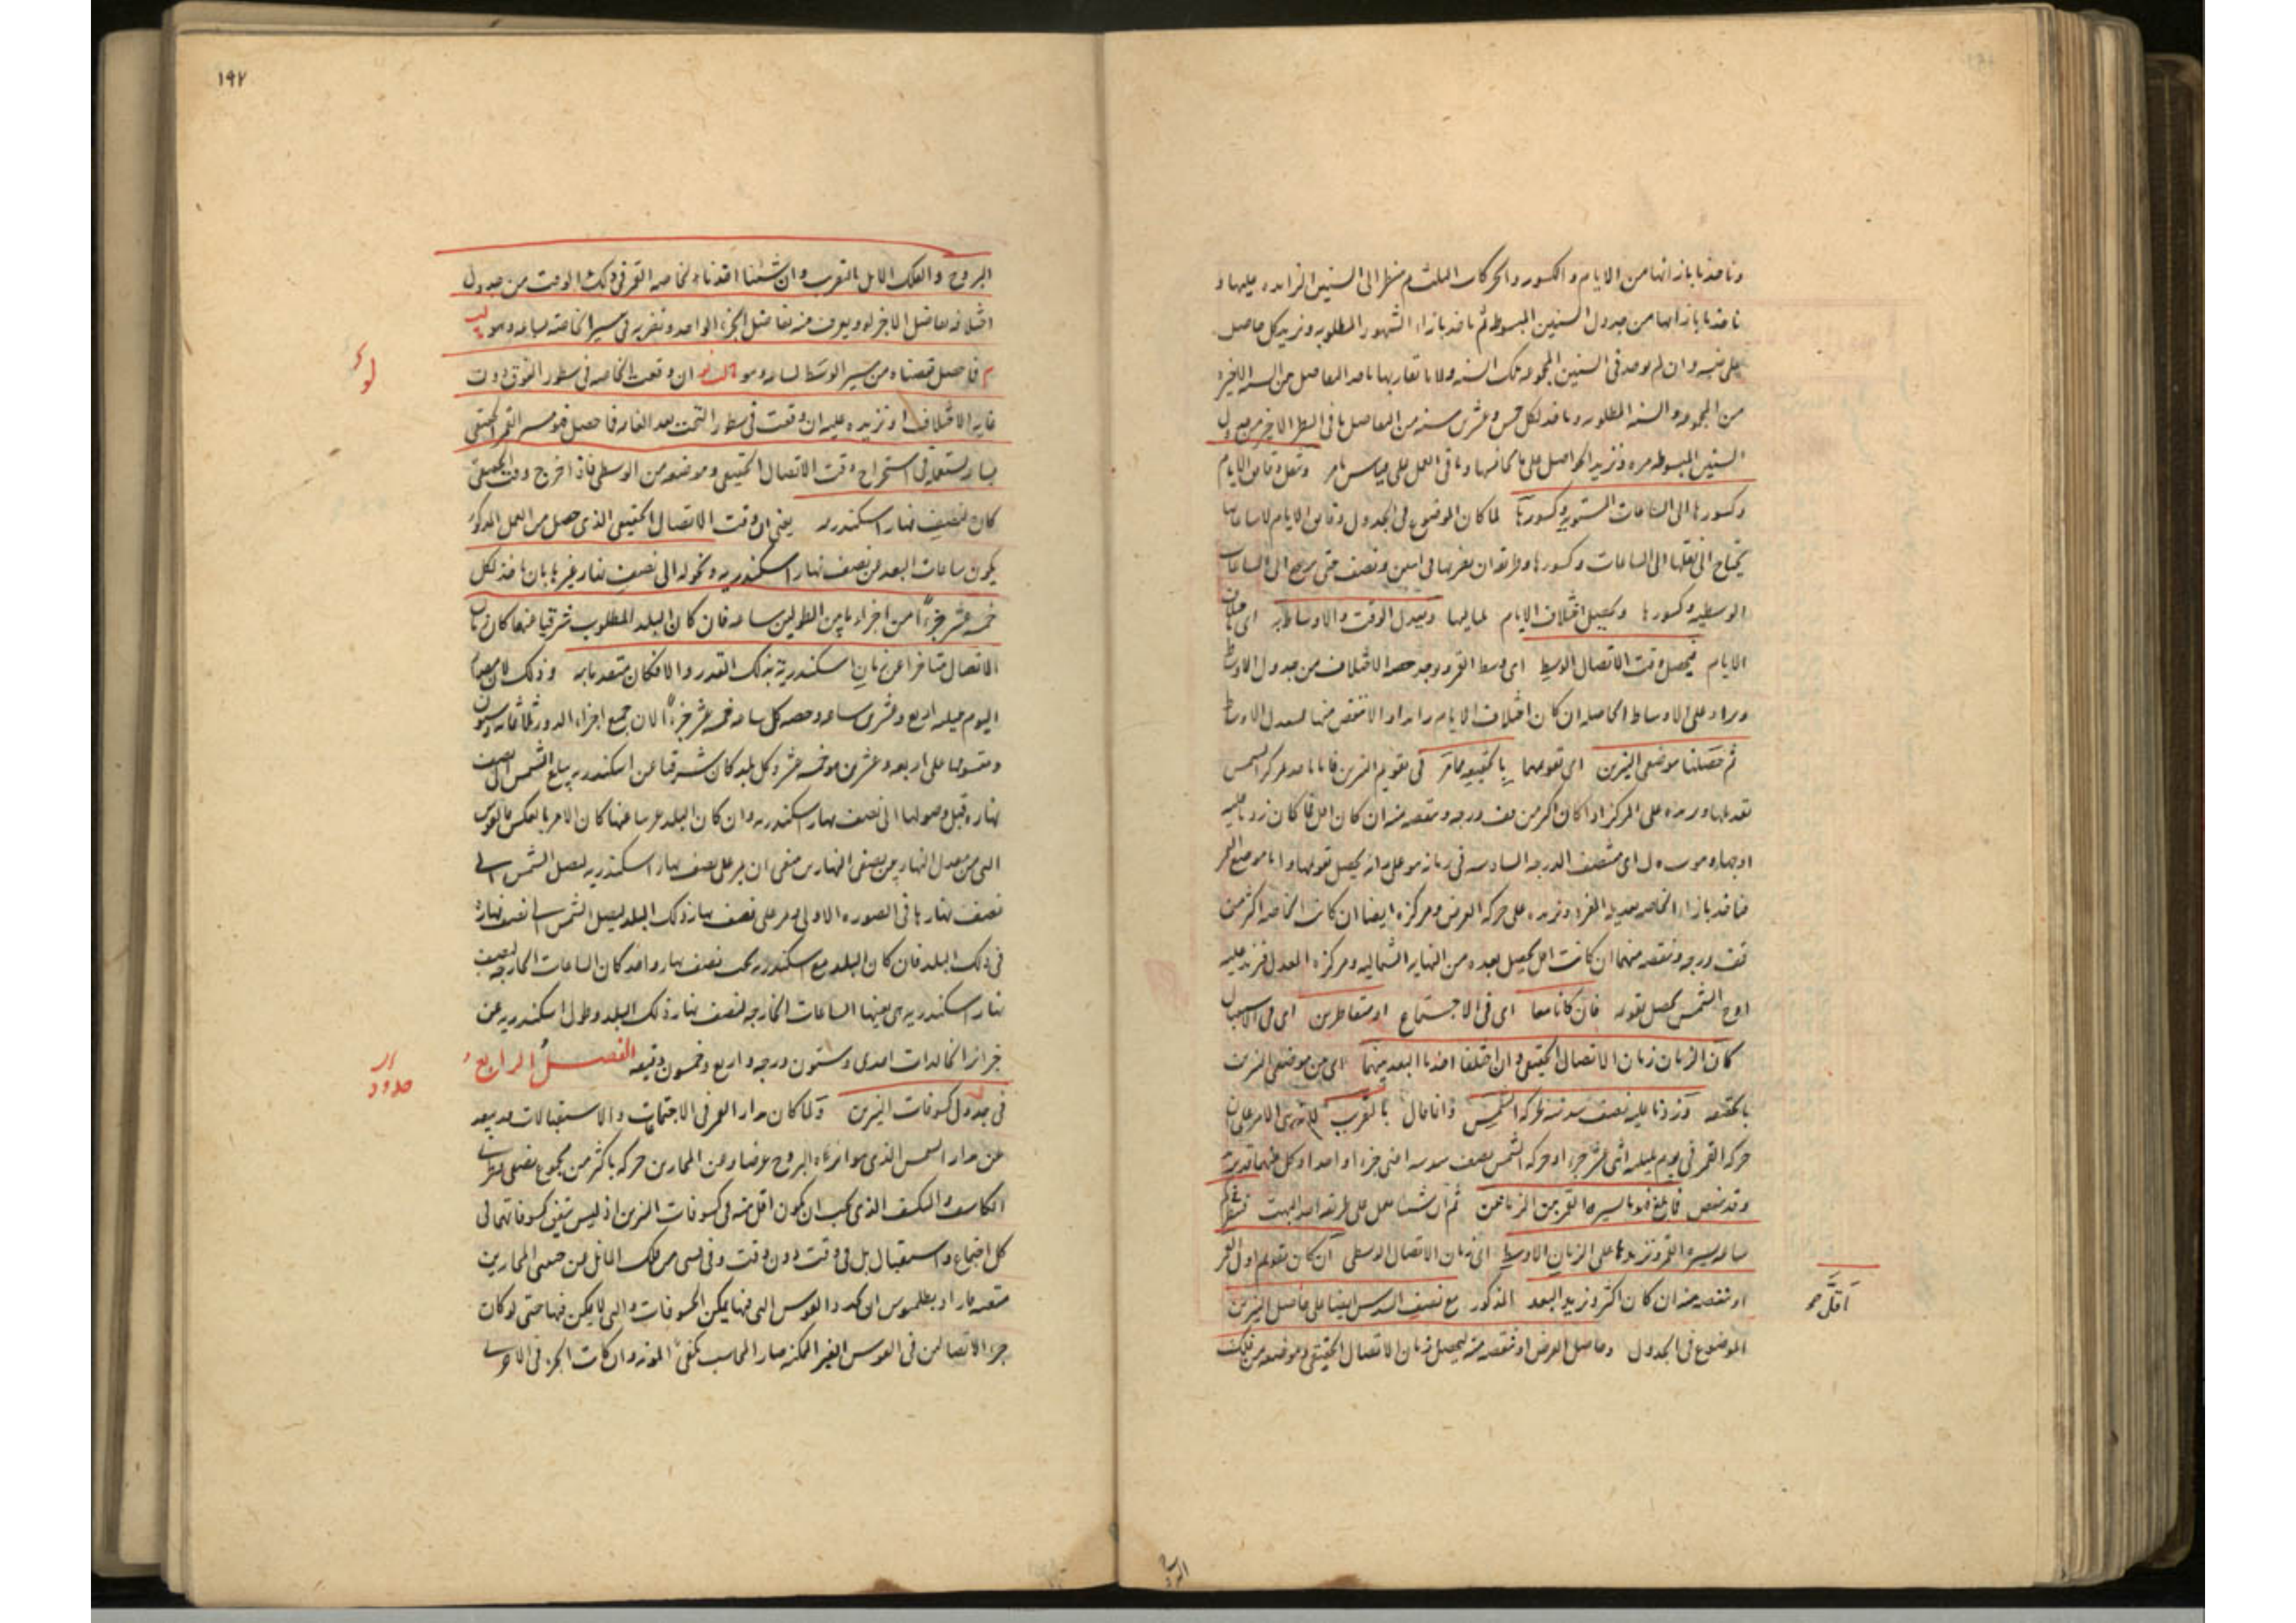 وناخذ ما بازائها من الايام والكسور والحركات الثلث ثم ننظر الى السنين الزايده عليها و
ناخذ ما بازائها من جدول السنين المبسوطه ثم ناخذ بازاء الشهور المطلوبه ونزيد كل حاصل
على وان لم يوجد فى السنين المجموعه تلك السنه ولا ما تقاربها ناخذ الفاضل من السنه الاخيره
من المجموعه والسنه المطلوبه وناخذ لكل خمس وعشرين سنه من الفاضل ما فى السطر الاخير من جدول
السنين المبسوطه مره ونزيد الحواصل على ما وباقى العمل على قياس ما مر وننقل دقايق الايام
وكسورها الى الساعات المستويه وكسورها لما كان الموضوع فى الجدول دقايق الايام لا ساعاتها
يحتاج الى نقلها الى الساعات وكسورها وطريقه ان نضربها فى اثنين ونصف حتى يرجع الى الساعات
الوسطيه وكسورها وتعديل اختلاف الايام بلياليها ويعدل الوقت والاوساط به اى باختلاف
الايام فيحصل وقت الاتصال الوسط اى وسط القمر ويوجد حصه الاختلاف من جدول الاوساط
ويزاد على الاوساط الحاصله ان كان اختلاف الايام زائدا والا ننقص منها فيعدل الاوساط
ثم حصلنا موضعى النيرين اى تقويمهما بالحقيقه كما مر فى تقويم النيرين فانا ناخذ بمركز الشمس
تعديلها ونزيده على المركز اذا كان اكثر من قف درجه وننقصه منه ان كان اقل فما كان زدنا عليه
اوجها وهو سه ل اى منتصف الدرجه السادسه فى زمانه هو على انه يحصل تقويمها واما موضع القمر
فناخذ بازاء الخاصه تعديله المفرد ونزيده على حركه العرض ومركزه ايضا ان كانت الخاصه اكثر من
قف درجه وننقصه منهما ان كانت اقل يحصل بعده من النهايه الشماليه ومركزه المعدل فنزيد عليه
اوج الشمس يحصل تقويمه فان كانا معا اى فى الاجتماع او متقاطرين اى فى الاستقبال
كان الزمان زمان الاتصال الحقيقى وان اختلفا اخذنا البعد بينهما اى بين موضعى النيرين
بالحقيقه وزدنا عليه نصف سدسه لحركه الشمس وانما قال بالتقريب الامر على ان
حركه القمر فى يوم بليلته اثنى عشر جزءا وحركه الشمس نصف سدسه اعنى جزءا واحدا وكل منهما قد يزيد
وقد ينقص فما بلغ فهو ما يسيره القمر من الزمان ثم ان شئنا نعمل على طريقه اهل فننظر كم
ساعه يسيره القمر ونزيدها على الزمان الاوسط اى زمان الاتصال الوسطى ان كان تقويم القمر
او ننقصه منه ان كان اكثر ونزيد البعد المذكور مع نصف السدس ايضا على حاصل النيرين
الموضوع فى الجدول وحاصل العرض او ننقصه منه ليحصل زمان الاتصال الحقيقى وموضعه من فلك
اقل صح
١٩٢
البروج والفلك المايل بالتقريب وان شئنا اخذنا لخاصه القمر فى ذلك الوقت من جدول
اختلافه تفاضل الاجزاء ويعرف منه تفاضل الجزء الواحد ونضربه فى سير الخاصه لساعه وهو
فما حصل نقصناه من سير الوسط لساعه وهو ان وقعت الخاصه فى سطور الفوق دون
غايه الاختلاف او نزيده عليه ان وقعت فى سطور التحت بعد الغايه فما حصل فهو سير القمر الحقيقى
لساعه نستعمله فى استخراج وقت الاتصال الحقيقى وموضعه من الوسطى فاذا اخرج وقت الحقيقى
كان لنصف نهار اسكندريه يعنى ان وقت الاتصال الحقيقى الذى حصل من العمل المذكور
يكون ساعات البعد عن نصف نهار اسكندريه ونحوله الى نصف نهار غيرها بان ناخذ لكل
خمسه عشر جزءا من اجزاء ما بين الطولين ساعه فان كان البلد المطلوب شرقيا عنها كان زمان
الاتصال متاخرا عن زمان اسكندرية بذلك القدر والا فكان متقدما به وذلك لان
اليوم بليلته اربع وعشرون ساعه وحصه كل ساعه خمسه عشر جزءا لان جميع اجزاء الدور ثلثمائه وستون
ومقسومها على اربعه وعشرين هو خمسه عشر وكل بلد كان شرقيا عن اسكندريه يبلغ الشمس الى نصف
نهاره قبل وصولها الى نصف نهار اسكندريه وان كان البلد غربيا عنها كان الامر بالعكس فالقوس
التى من معدل النهار بين نصفى النهارين ينبغى ان يمر على نصف نهار اسكندريه ليصل الشمس الى
نصف نهارها فى الصوره الاولى ويمر على نصف نهار ذلك البلد ليصل الشمس الى نصف نهاره
فى ذلك البلد فان كان البلد مع اسكندريه تحت نصف نهار واحد كان الساعات الخارجه لنصف
نهار اسكندريه هى بعينها الساعات الخارجه لنصف نهار ذلك البلد وطول اسكندريه عن
جزائر الخالدات احدى وستون درجه واربع وخمسون دقيقه الفصل الرابع
فى جدول كسوفات النيرين ولما كان مدار القمر فى الاجتماعات والاستقبالات قد يبعد
عن مدار الشمس الذى هو البروج عرضا وعن المحاذى حركه باكثر من مجموع نصفى قطرى
الكاسف والمنكسف الذى يجب ان يكون اقل منه فى كسوفات النيرين اذ ليس يتفق كسوفاتهما فى
كل اجتماع واستقبال بل فى وقت دون وقت وفى قسى من فلك المائل عن جنبتى المحاذيين
متعينه اراد بطلميوس ان يحدد القوس التى فيها يمكن الكسوفات والتى لا يمكن فيها حتى لو كان
جزء الاتصالين فى القوس الغير الممكنه صار المحاسب مكفى المؤنه وان كانت الجزء فى الاخرى